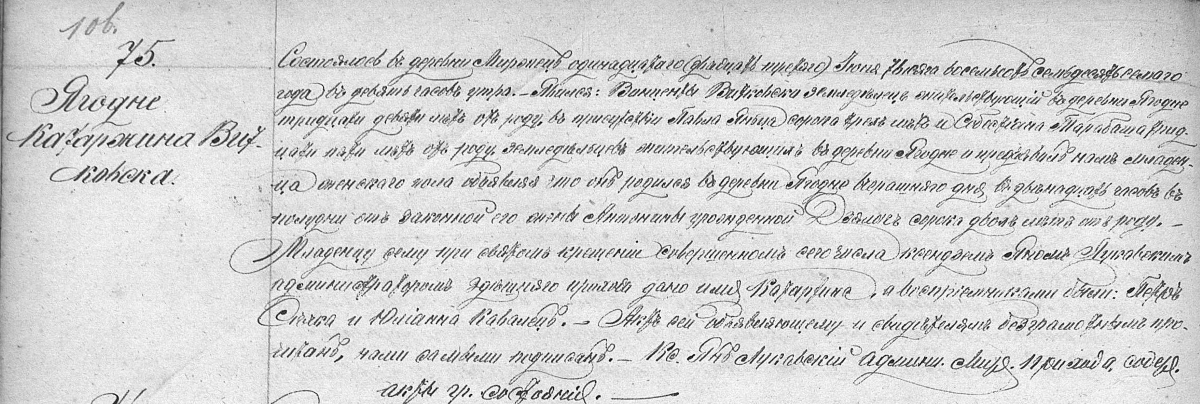 10б.
75.
Ягодне
Катаржина Вит-
ковска.
Состоялось въ деревни Миронецъ одинадцатаго (двадцать третяго) Іюня тысяча восемьсотъ семьдесятъ семаго
года въ девять часовъ утра. — Явился: Винценты Витковски земледѣлецъ жительствующій въ деревни Ягодне
тридцати девяти лѣтъ отъ роду, въ присутствіи Павла сорока трехъ лѣтъ и Себестіяна Тарабаша трид-
цати пяти лѣтъ отъ роду, земледѣльцевъ жительствующихъ въ деревни Ягодне и предъявилъ намъ младен-
ца женскаго пола объявляя что онъ родился въ деревни Ягодне вчерашняго дня въ двѣнадцать часовъ въ
полудни отъ законной его жены Антонины урожденной сорока двохъ лѣтъ отъ роду. —
Младенцу сему при святомъ крещеніи совершенномъ сего числа ксендземъ Яномъ Луковскимъ
администраторомъ здѣшняго прихода дано имя Катаржина, а воспріемниками были: Петръ
и Юліанна Кавалецъ. — Актъ сей объявляющему и свидѣтелямъ безграмотнымъ про-
читанъ, нами самыми подписанъ. — Кс. Янъ Луковскій Админи. Мир. прихода, содер.
акты гр. состоянія. —